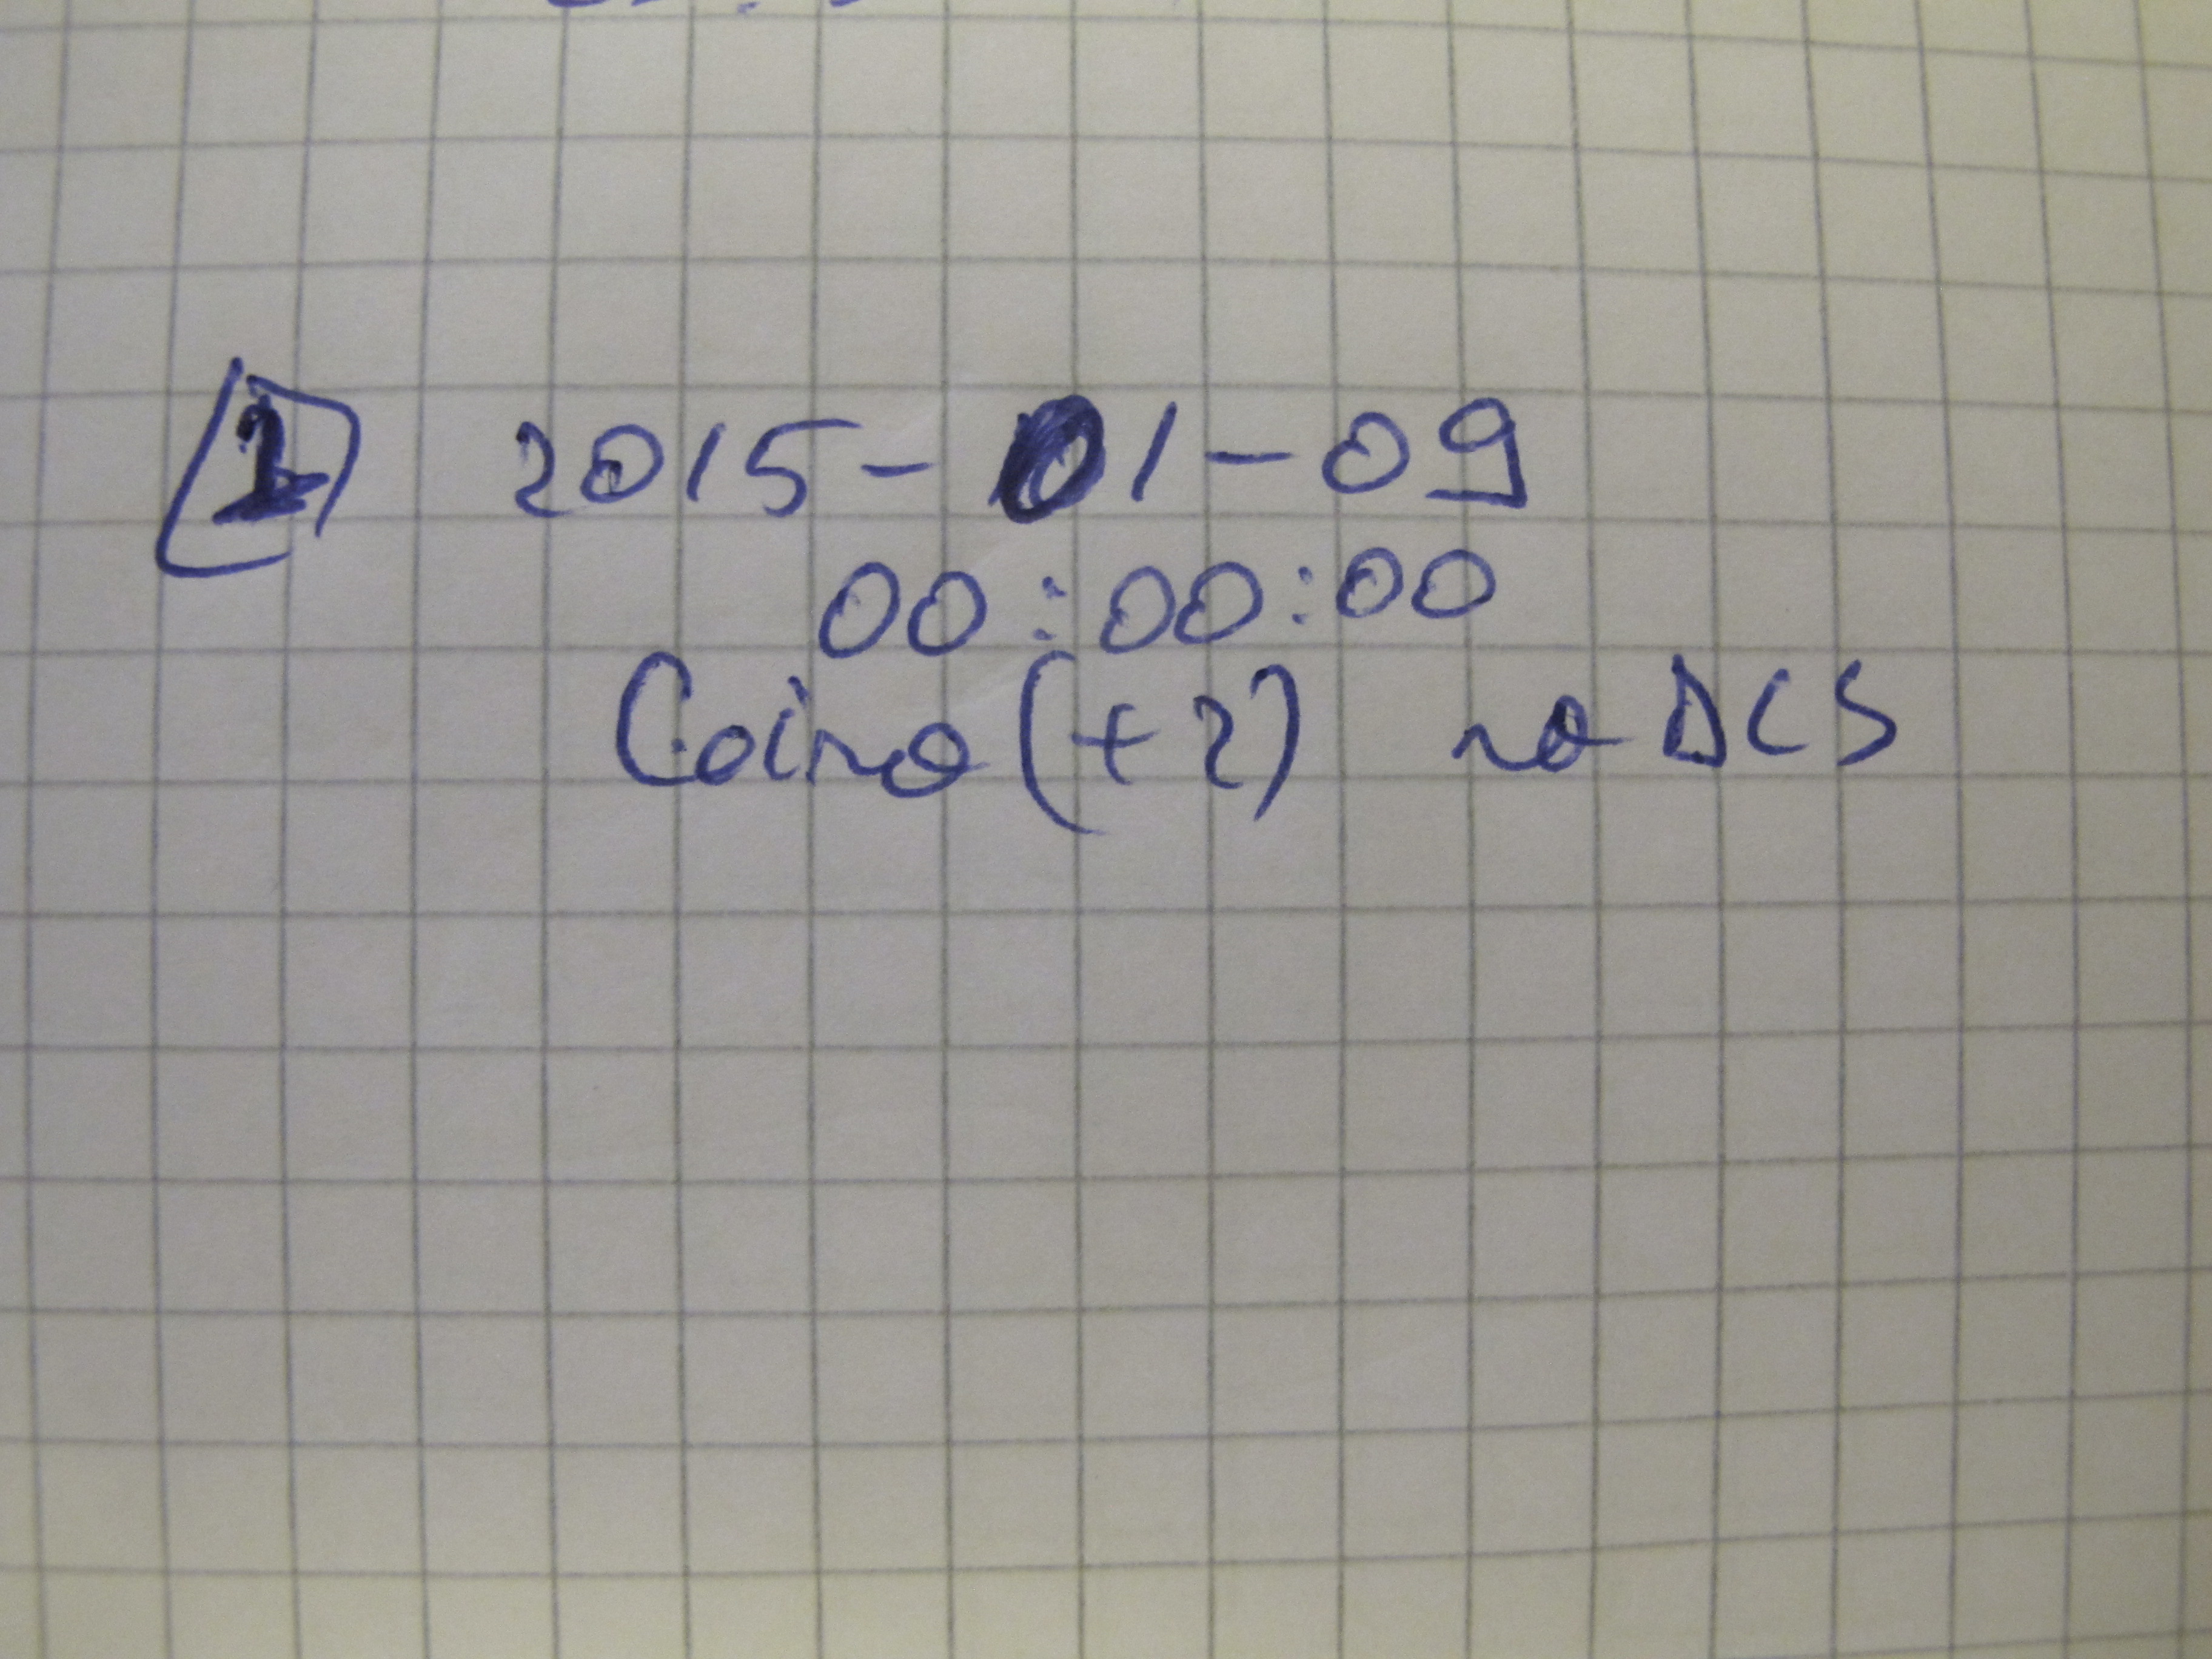 1 2015-01-09
00:00:00
Cairo (+2) no DCS